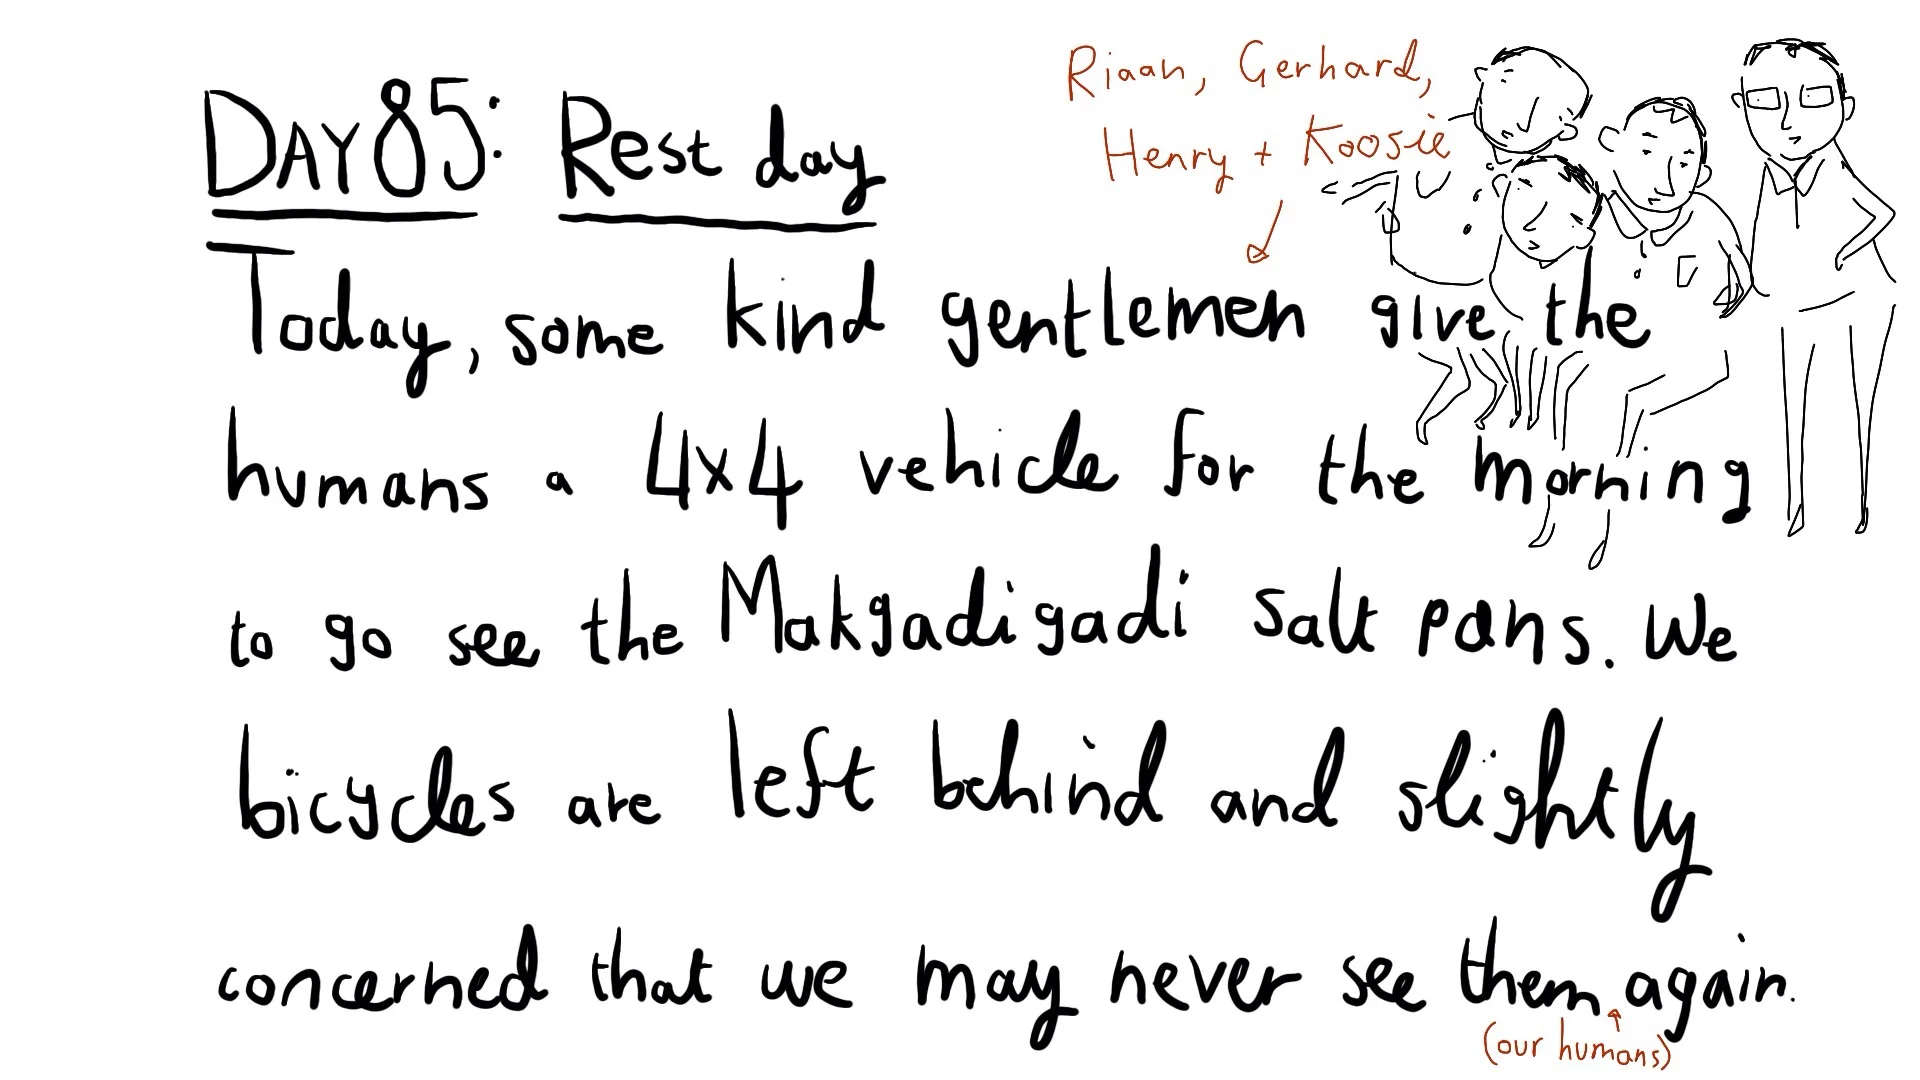 Riaan, Gerhard,
Henry + Koosie
DAY 85: Rest day
Today, some kind gentlemen give the
humans a 4x4 vehicle for the morning
to go see the Makgadigadi salt pans. We
bicycles are left behind and slightly
concerned that we may never see them again.
(our humans)